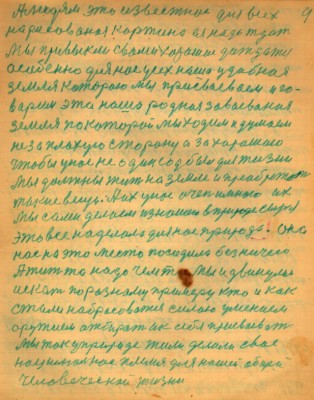 9
А людям это известное для всех
нарисованая картина а надо ждат
Мы привыкли своим хозяином дажда
особенно для нас усех наша удобная
земля которою мы присваеваем и го-
варим эта наша родная завоеваная
земля по которой мы ходим и думаем
не за плохую сторону а за хорошаю
чтобы у нас не один год был для жизни
Мы должны жит на земле и приобретат
такие вещи. Их у нас очен много их
Мы сами делаем изнашаем в природе
Это все наделало для нас природа. Она
нас на это место посадила без ничего
А жит то надо чем то Мы и двинулис
искат по разному примеру кто и как
стали набрасоватся силою умением
оружием атбират и к себе присваеват
Мы так у природе жили делали свае
националное племя для нашей общей
Человеческой жизни